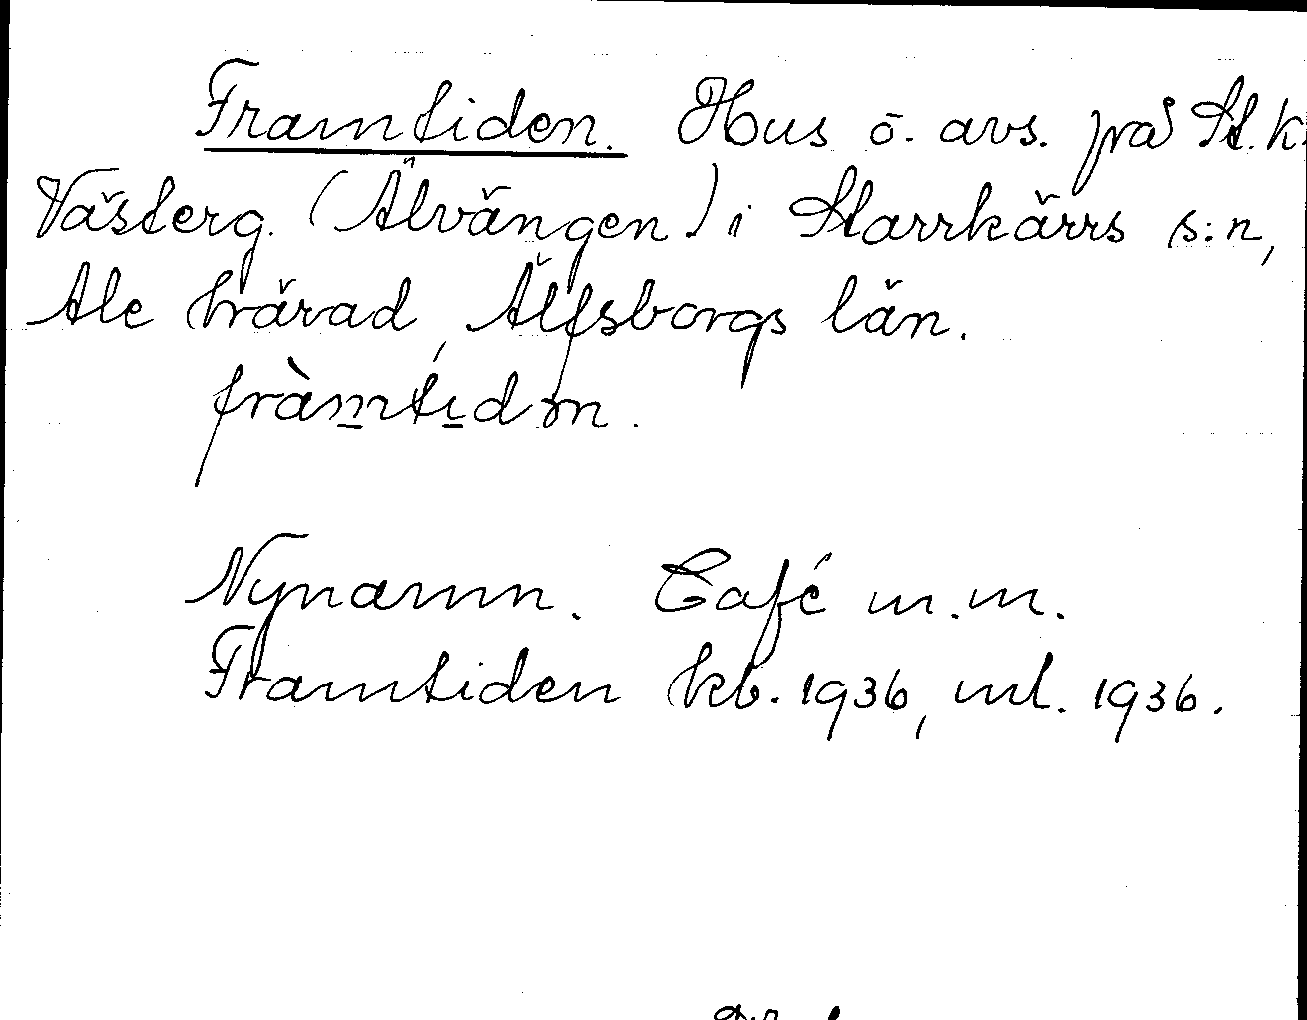 Framtiden. Hus o. avs. på St. k.
Västerg. (Älvängen) i Starrkärrs s:n,
Ale härad, Älfsborgs län.
fràmtidn.
Nynamn. Café m.m.
Framtiden kb. 1936, ml. 1936.